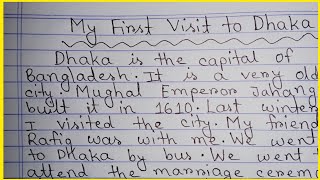 My First Visit to Dhaka
Dhaka is the capital of
Bangladesh. It is a very old
city. Mughal Emperor Jahang
built it in 1610. Last winter
I visited the city. My friend
Rafiq was with me. We went
to Dhaka by bus. We went t
attend the marriage cerem